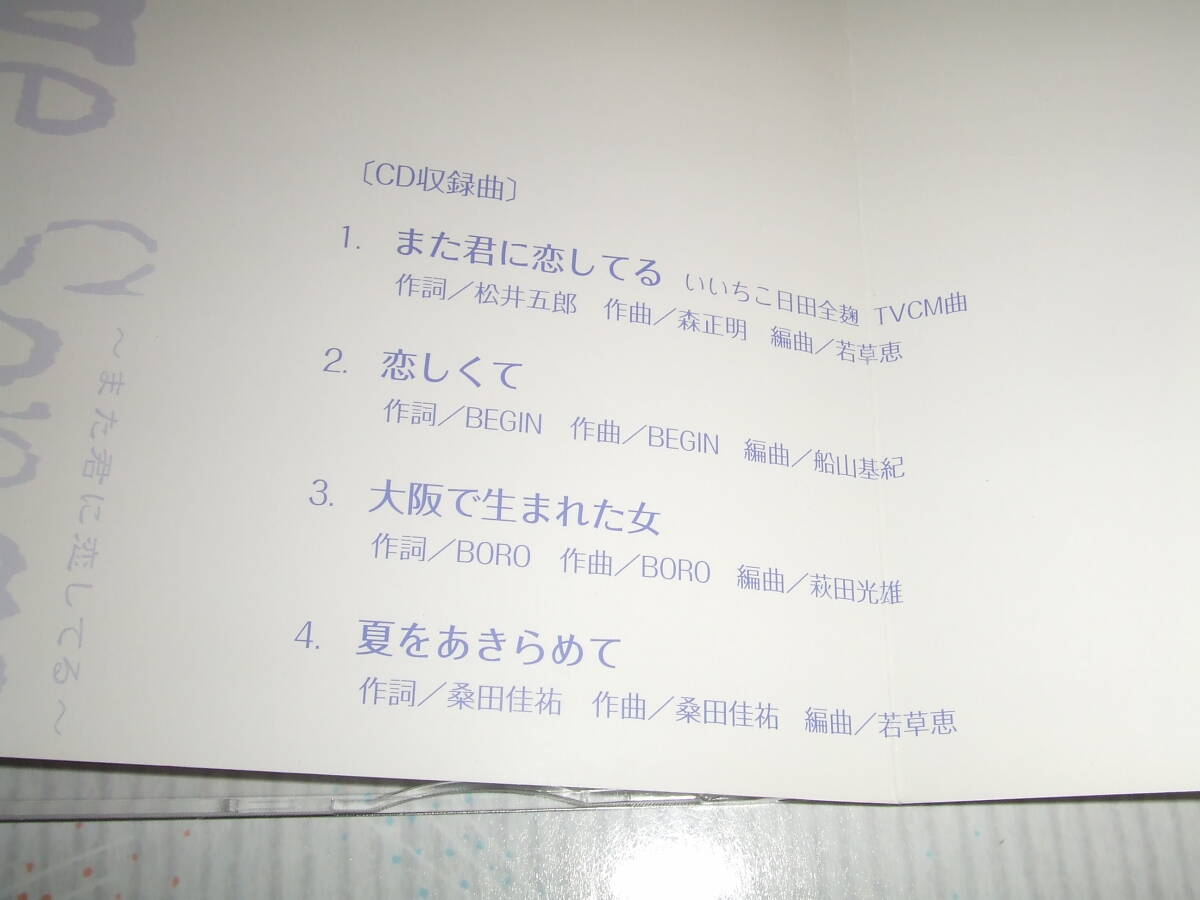 〔CD収録曲〕
1. また君に恋してる いいちこ日田全麹 TVCM曲
作詞／松井五郎 作曲／森正明 編曲／若草恵
2. 恋しくて
作詞／BEGIN 作曲／BEGIN 編曲／船山基紀
3. 大阪で生まれた女
作詞／BORO 作曲／BORO 編曲／萩田光雄
4. 夏をあきらめて
作詞／桑田佳祐 作曲／桑田佳祐 編曲／若草恵
～また君に恋してる～